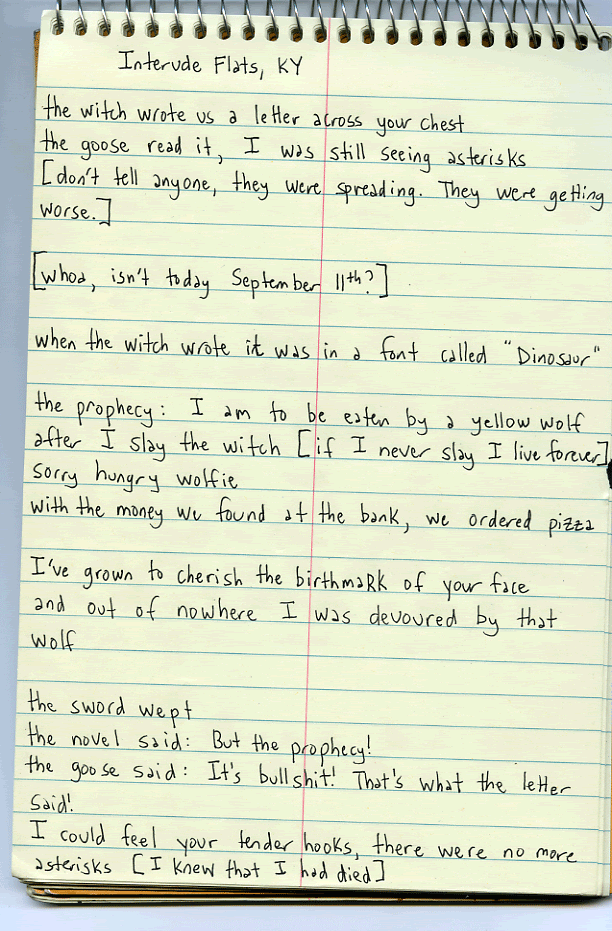 Interude Flats, KY
the witch wrote us a letter across your chest
the goose read it, I was still seeing asterisks
[don't tell anyone, they were spreading. They were getting
worse.]
[whoa, isn't today September 11th?]
when the witch wrote it was in a font called "Dinosaur"
the prophecy: I am to be eaten by a yellow wolf
after I slay the witch [if I never slay I live forever]
sorry hungry wolfie
with the money we found at the bank, we ordered pizza
I've grown to cherish the birthmaRK of your face
and out of nowhere I was devoured by that
wolf
the sword wept
the novel said: But the prophecy!
the goose said: It's bullshit! That's what the letter
said!
I could feel your tender hooks, there were no more
asterisks [I knew that I had died]